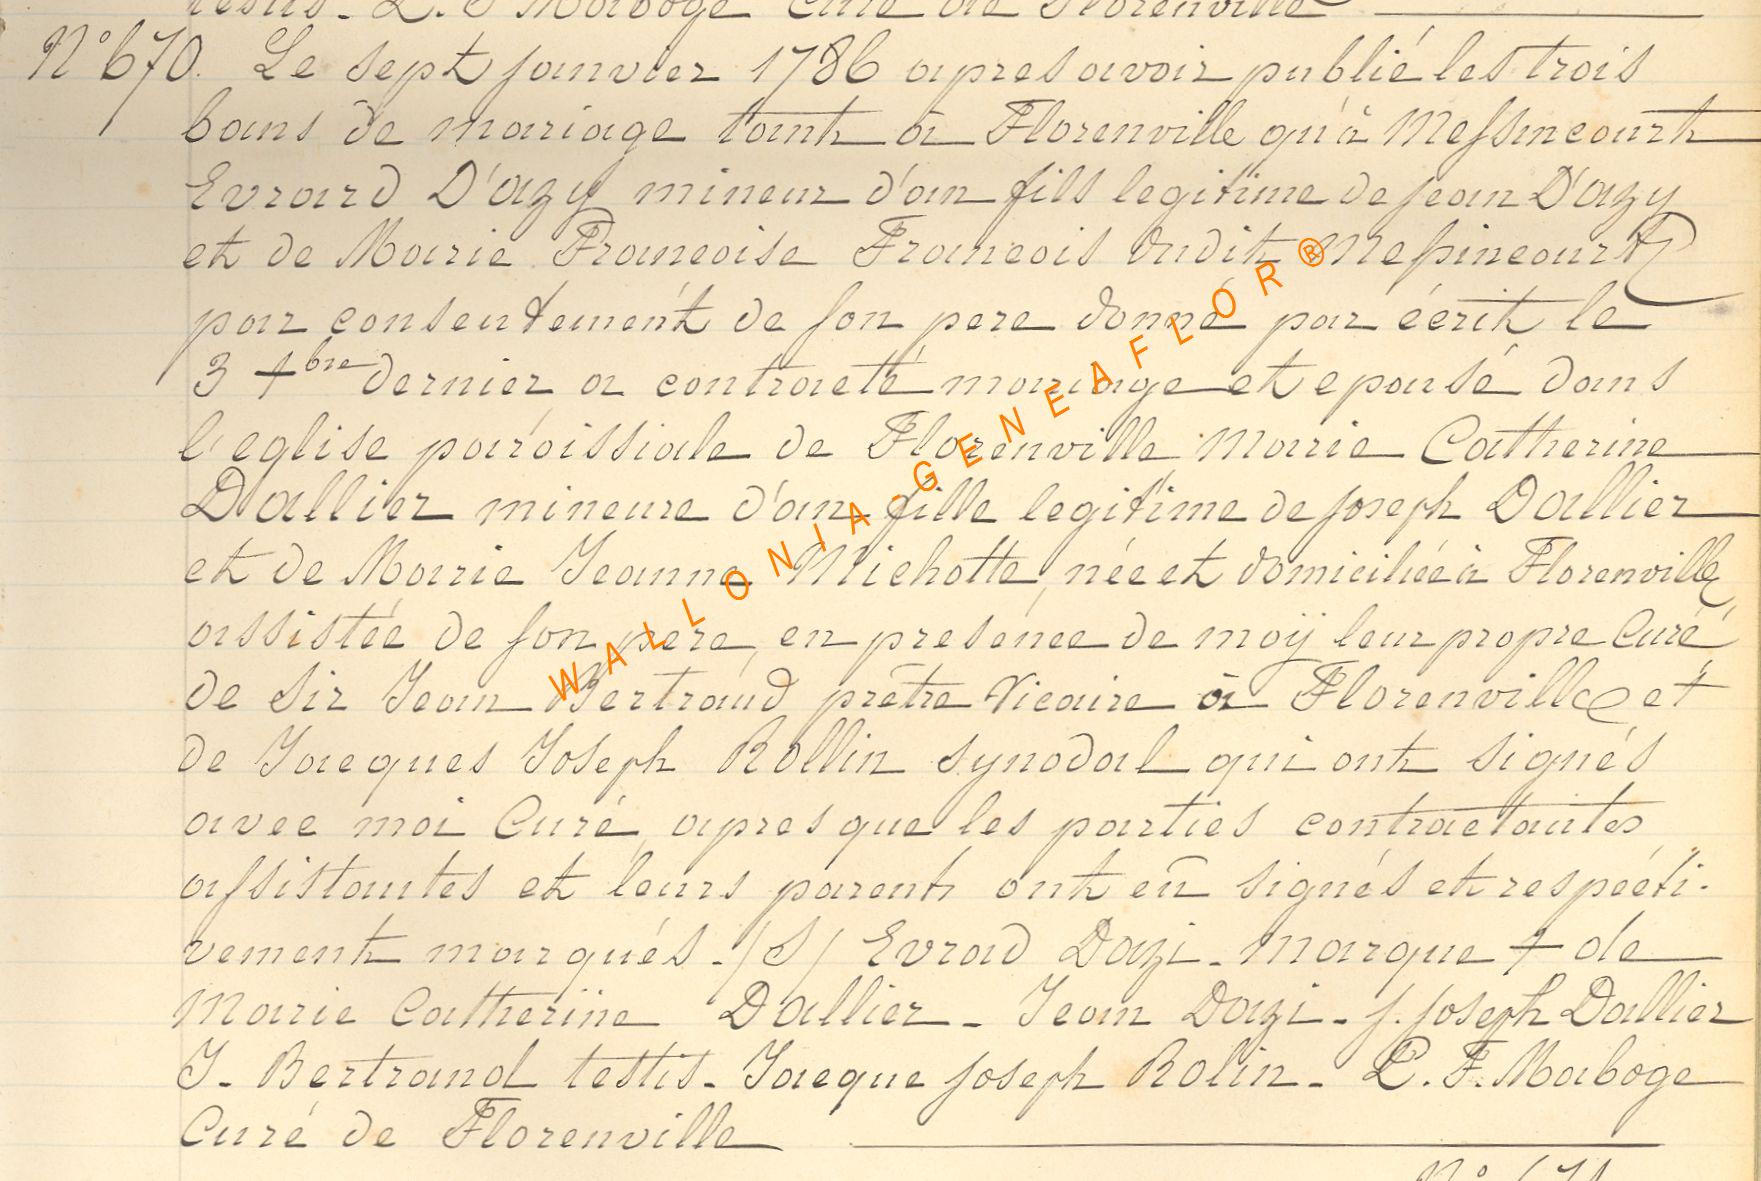 testis. L. F Maboge Curé de Florenville
N° 670. Le sept janvier 1786 apres avoir publié les trois
bans de mariage tant à Florenville qu'à Messincourt
Evrard D'azy mineur d'an fils legitime de jean D'azy
et de Marie Francoise Francois dudit Messincourt
par consentement de son pere donné par écrit le
3 + bre dernier a contracté mariage et epousé dans
l'eglise paroissiale de Florenville Marie Catherine
Dallier mineure d'an fille legitime de joseph Dallier
et de Marie Jeanne Michotte, née et domiciliée à Florenville
assistée de son pere, en presénce de moÿ leur propre Curé
de Sir Jean Bertrand prêtre Vicaire à Florenville et
de Jacques Joseph Rollin synodal qui ont signés
avec moi Curé, apres que les parties contractantes
assistantes et leurs parents ont eu signés et respécti-
vement marqués. /S/ Evrad Dazi. marque + de
Marie Catherine Dallier. Jean Dazi. j. joseph Dallier
J. Bertrand testis. Jacque joseph Rolin. L. F. Maboge
Curé de Florenville
WALLONIA-GENEAFLOR®